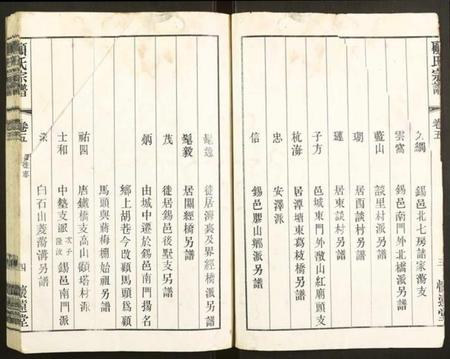 顧氏宗譜
卷五
三
錫邑北七房諸家蕩支
雲窩 錫邑南門外北橋派另譜
藍山 談里村派另譜
瑚 居西談村另譜
璉 居東談村另譜
子方 邑城東門外嶔山紅廟頭支
杭海 居潭塘東葛枝橋另譜
忠 安澤派
信 錫邑膠山鄉派另譜
徙居海裏及界經橋派另譜
毅 居關經橋另譜
茂 徙居錫邑後墅支另譜
炳 由城中遷於錫邑南門揚名
鄉上胡巷今改顧馬頭爲顧
馬頭與蔣梅柵始祖另譜
祐四 唐鐵橋支高山顧塔村派
士和 中塾支派 錫邑南門派
白石山菱蕩溝另譜
顧氏宗譜
卷五
四